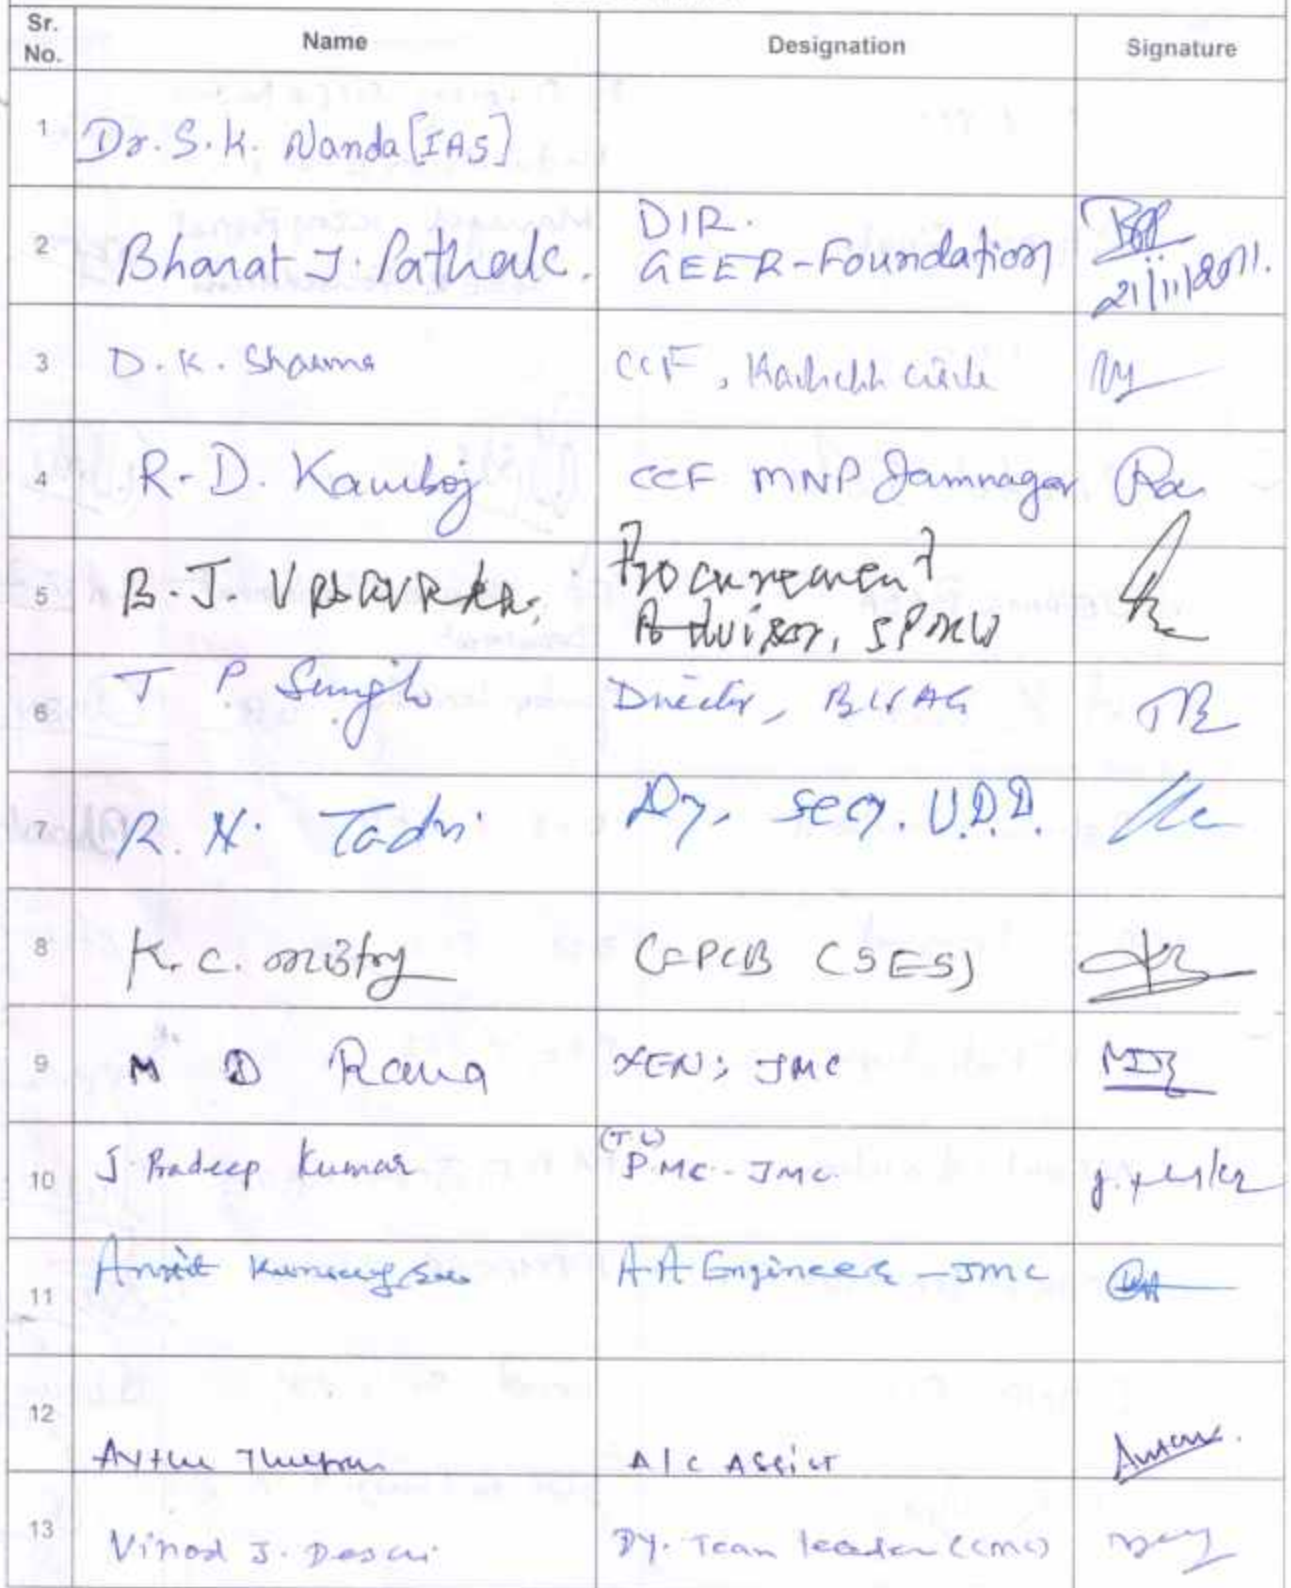 Sr. No. Name Designation Signature
1 Dr. S. K. Nanda [IAS]
2 Bharat J. Pathak. DIR. GEER-Foundation 21/11/2011.
3 D. K. Sharma CCF, Kachchh Circle
4 R. D. Kamboj CCF MNP Jamnagar
5 B. J. Procurement Advisor, SPMU
6 T P Singh Director, BISAG
7 R. N. Dy. Secy. U.D.D.
8 K. C. Mistry GPCB (SES)
9 M D Rana XEN; JMC
10 J. Pradeep Kumar (TL) PMC - JMC.
11 A.A Engineer - JMC
12 A/c Assist
13 Vinod J. Desai Dy. Team leader (CMC)